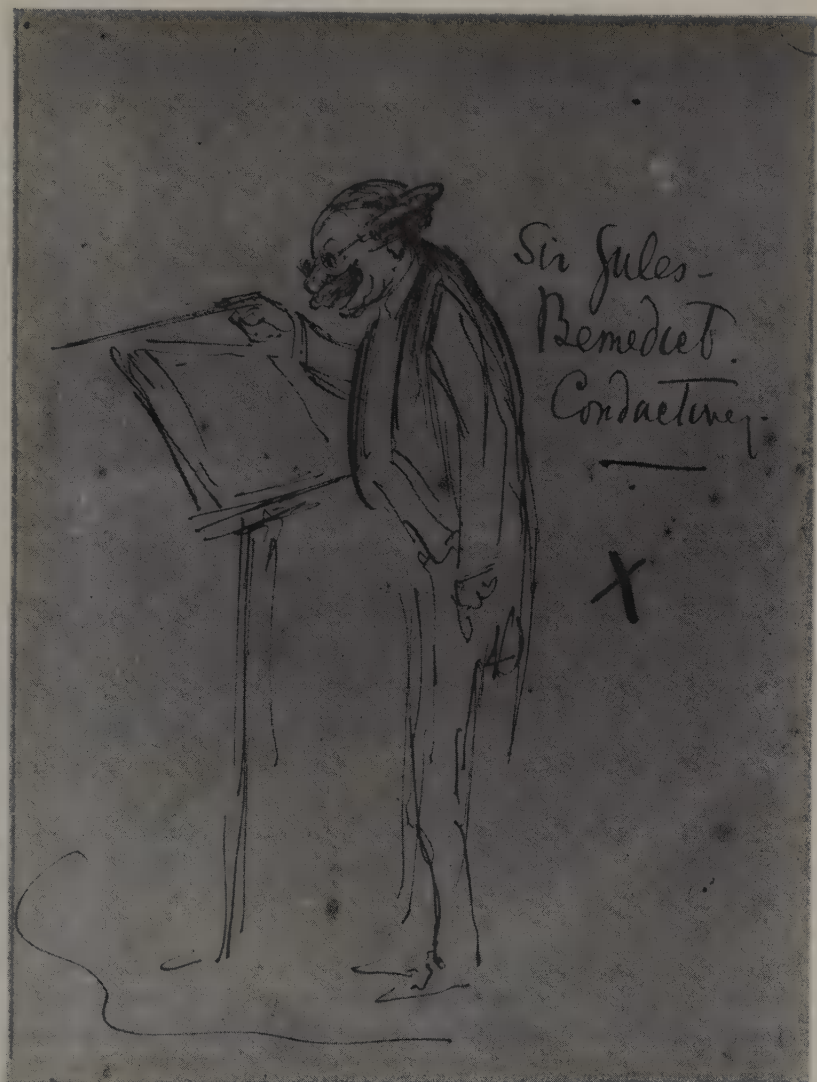 Sir Jules -
Benedict.
Conducting.
X